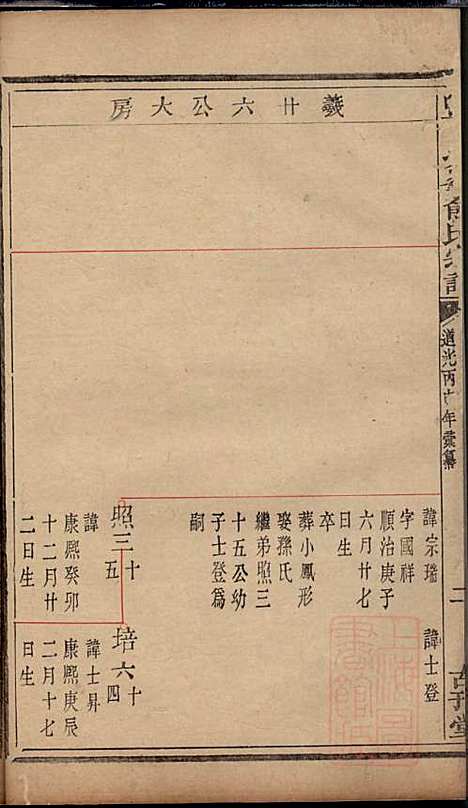 羲廿六公大房
俞氏宗譜
道光丙午年彙纂
二
古平堂
諱宗瑞
字國祥
順治庚子
六月廿七
日生
卒
葬小鳳形
娶孫氏
繼弟照三
十五公幼
子士登為
嗣
諱士登
照三十五
諱
康熙癸卯
十二月廿
二日生
培六十四
諱士昇
康熙庚辰
二月十七
日生
上海圖書館藏